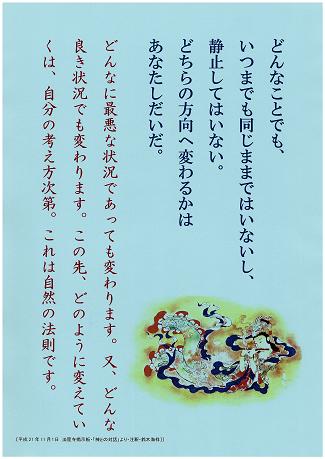 どんなことでも、
いつまでも同じままではいないし、
静止してはいない。
どちらの方向へ変わるかは
あなたしだいだ。
どんなに最悪な状況であっても変わります。又、どんな
良き状況でも変わります。この先、どのように変えてい
くは、自分の考え方次第。これは自然の法則です。
(平成21年11月1日 法霊寺掲示板・「神との対話」より・注釈・鈴木海修)